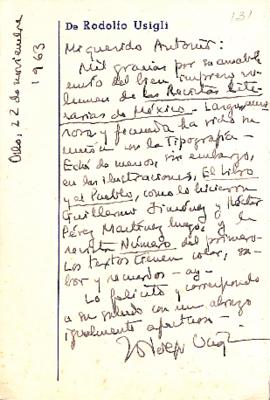 131
De Rodolfo Usigli
Oslo, 22 de noviembre
1963
Mi querido Antonio:
Mil gracias por su amable
envío del bien impreso vo-
lumen de las Revistas Lite-
rarias de México. Larga, amo-
rosa y fecunda ha sido su
en la Tipografía.
Eché de menos, sin embargo,
en las ilustraciones, El Libro
y el Pueblo, como lo hicieron
Guillermo Jiménez y Héctor
Pérez Martínez luego, y la
revista Número del primero.
Los textos tienen color, sa-
bor y recuerdos - ay -
Lo felicito y correspondo
a su saludo con un abrazo
igualmente afectuoso.
Rodolfo Usigli